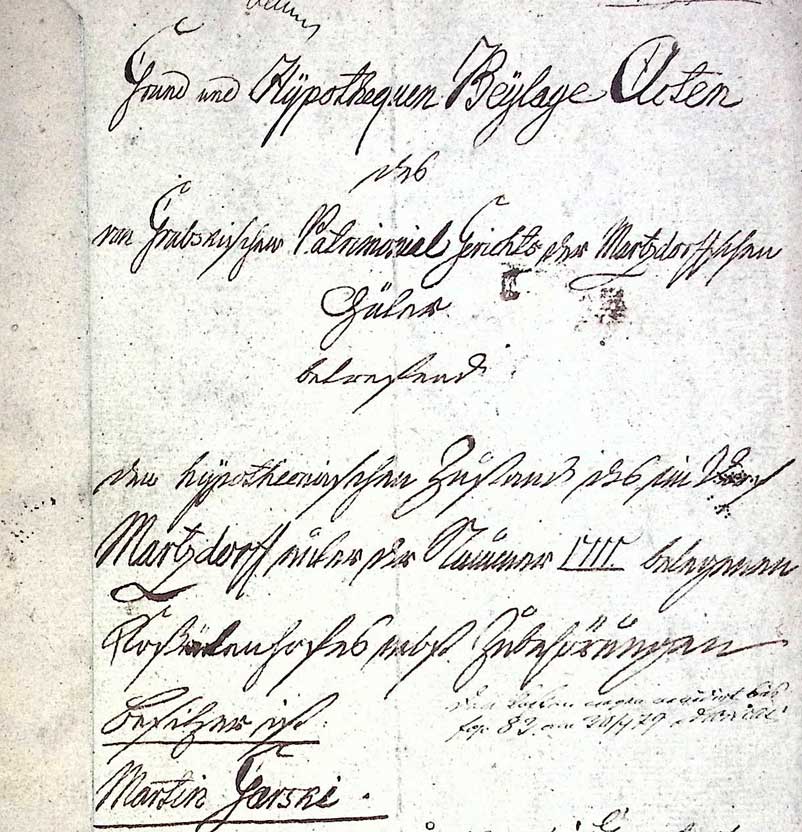 Grund und Hÿpothequen Beÿlage Acten
des
von Grabskischen Patrimonial Gerichts der Martzdorffschen
Güter
betreffend
den hÿpothecarischen Zustand des im
Martzdorff unter der Nummer VIII belegenen
Koßätenhofes nebst Zubehörungen
Besitzer ist
Martin Garski.